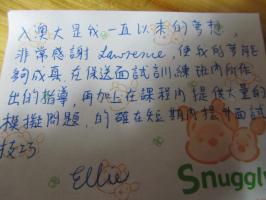 入澳大是我一直以來的夢想，
非常感謝 Lawrence，使我的夢能
夠成真，在保送面試訓練班內所作
出的指導，再加上在課程內提供大量的
模擬問題，的確在短期內提升面試
技巧
Ellie
Snuggly